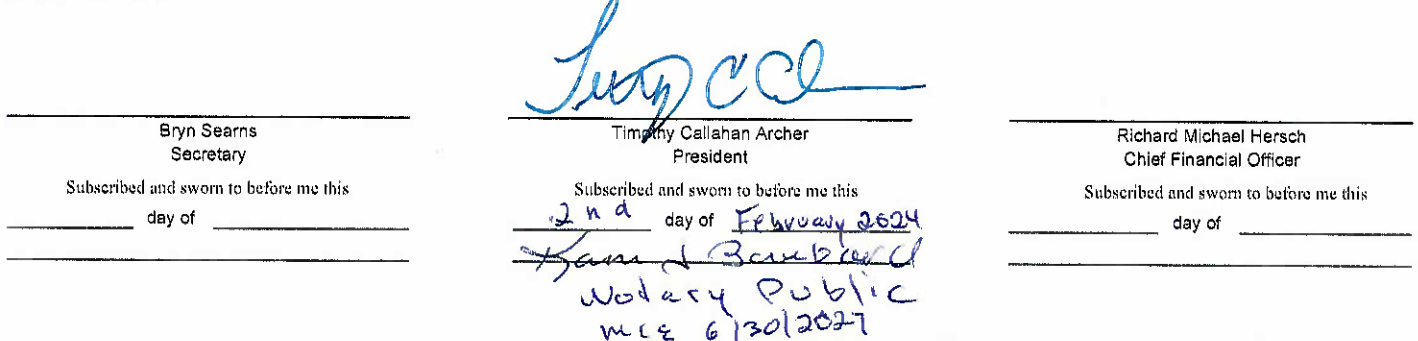 Bryn Searns
Secretary
Subscribed and sworn to before me this
day of
Timothy Callahan Archer
President
Subscribed and sworn to before me this
2nd day of February 2024
Notary Public
MCE 6/30/2027
Richard Michael Hersch
Chief Financial Officer
Subscribed and sworn to before me this
day of